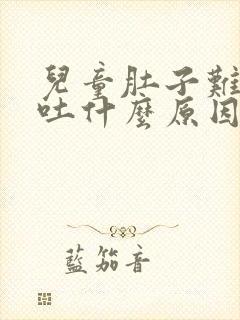 兒童肚子難
吐什麼原因
藍笳音